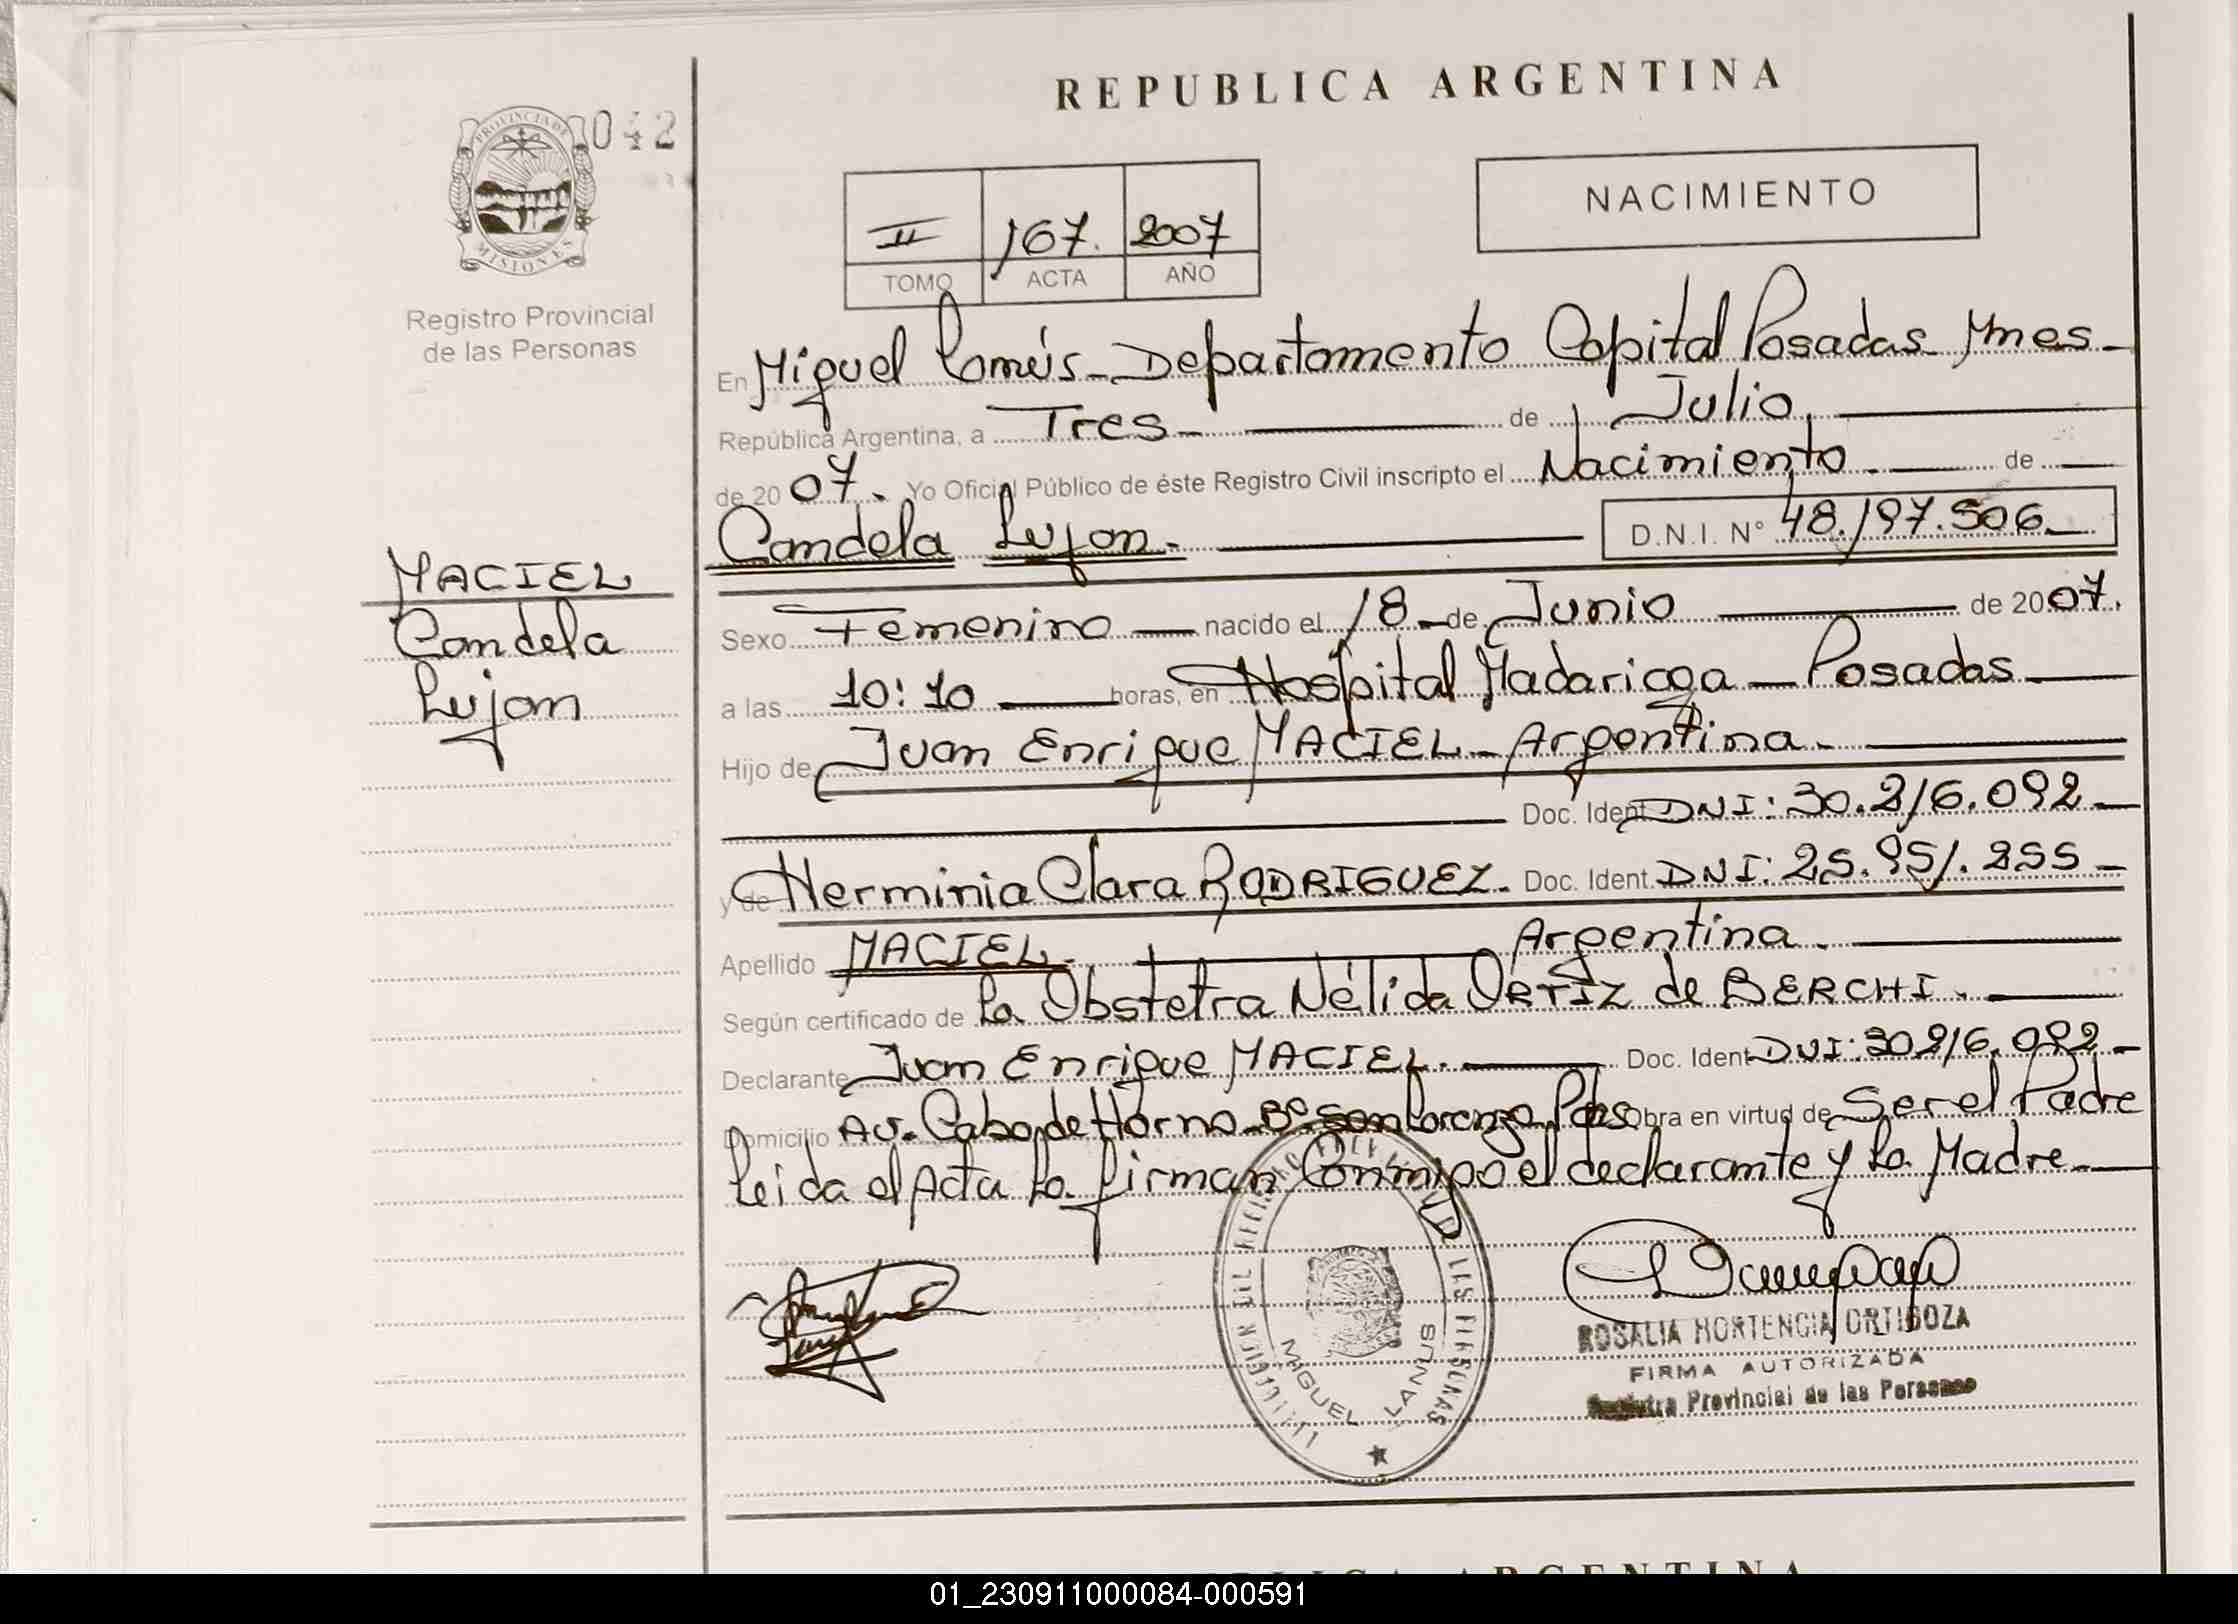 REPUBLICA ARGENTINA
042
PROVINCIA DE
MISIONES
Registro Provincial
de las Personas
NACIMIENTO
II 167. 2007
TOMO ACTA AÑO
En Miguel Lanús - Departamento Capital Posadas Mnes -
República Argentina, a Tres - de Julio,
de 20 07. Yo Oficial Público de éste Registro Civil inscripto el Nacimiento. de
Candela Lujan. D.N.I. N° 48.197.506
MACIEL
Candela
Lujan
Sexo Femenino nacido el 18 de Junio de 2007.
a las 10:10 horas, en Hospital Madariaga - Posadas
Hijo de Juan Enrique MACIEL - Argentina.
Doc. Ident. DNI: 30.216.092
y de Herminia Clara RODRIGUEZ. Doc. Ident. DNI: 25.951.255
Apellido MACIEL. Argentina.
Según certificado de la Obstetra Nélida ORTIZ de BERCHI.
Declarante Juan Enrique MACIEL. Doc. Ident. DNI: 30216.092
Domicilio Av. Cabo de Horno - B° San Lorenzo Pdas Obra en virtud de Ser el Padre
Leida el Acta La firman Conmigo el declarante y La Madre
MIGUEL LANUS
ROSALIA HORTENCIA ORTIGOZA
FIRMA AUTORIZADA
Provincial de las Personas
01_230911000084-000591